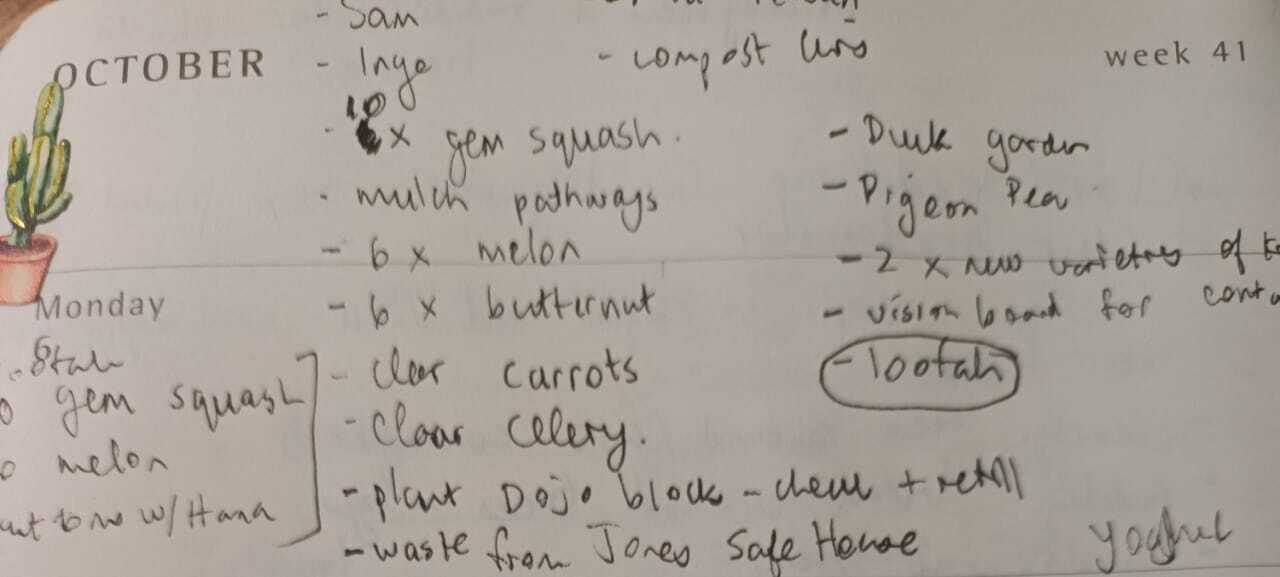 - Sam
OCTOBER
- Inge
- compost
week 41
10
x gem squash.
- Duck garden
· mulch pathways
- Pigeon Pea
- 6 x melon
- 2 x new varietys of
Monday
- 6 x butternut
- vision board for
gem squash
- clear carrots
- loofah
melon
- clear celery.
w/ Hana
- plant Dojo block - check + refill
- waste from Jones Safe House